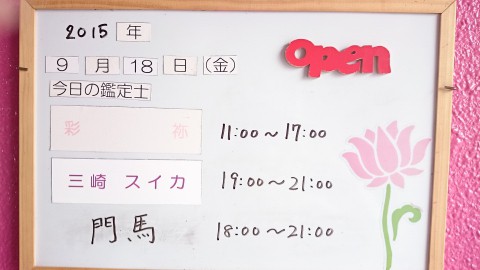 2015 年
open
9 月 18 日 (金)
今日の鑑定士
彩 祢 11:00～17:00
三崎 スイカ 19:00～21:00
門馬 18:00～21:00